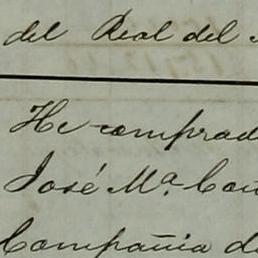 del Real del
He comprad
José Mª. Cañ
Compañia d